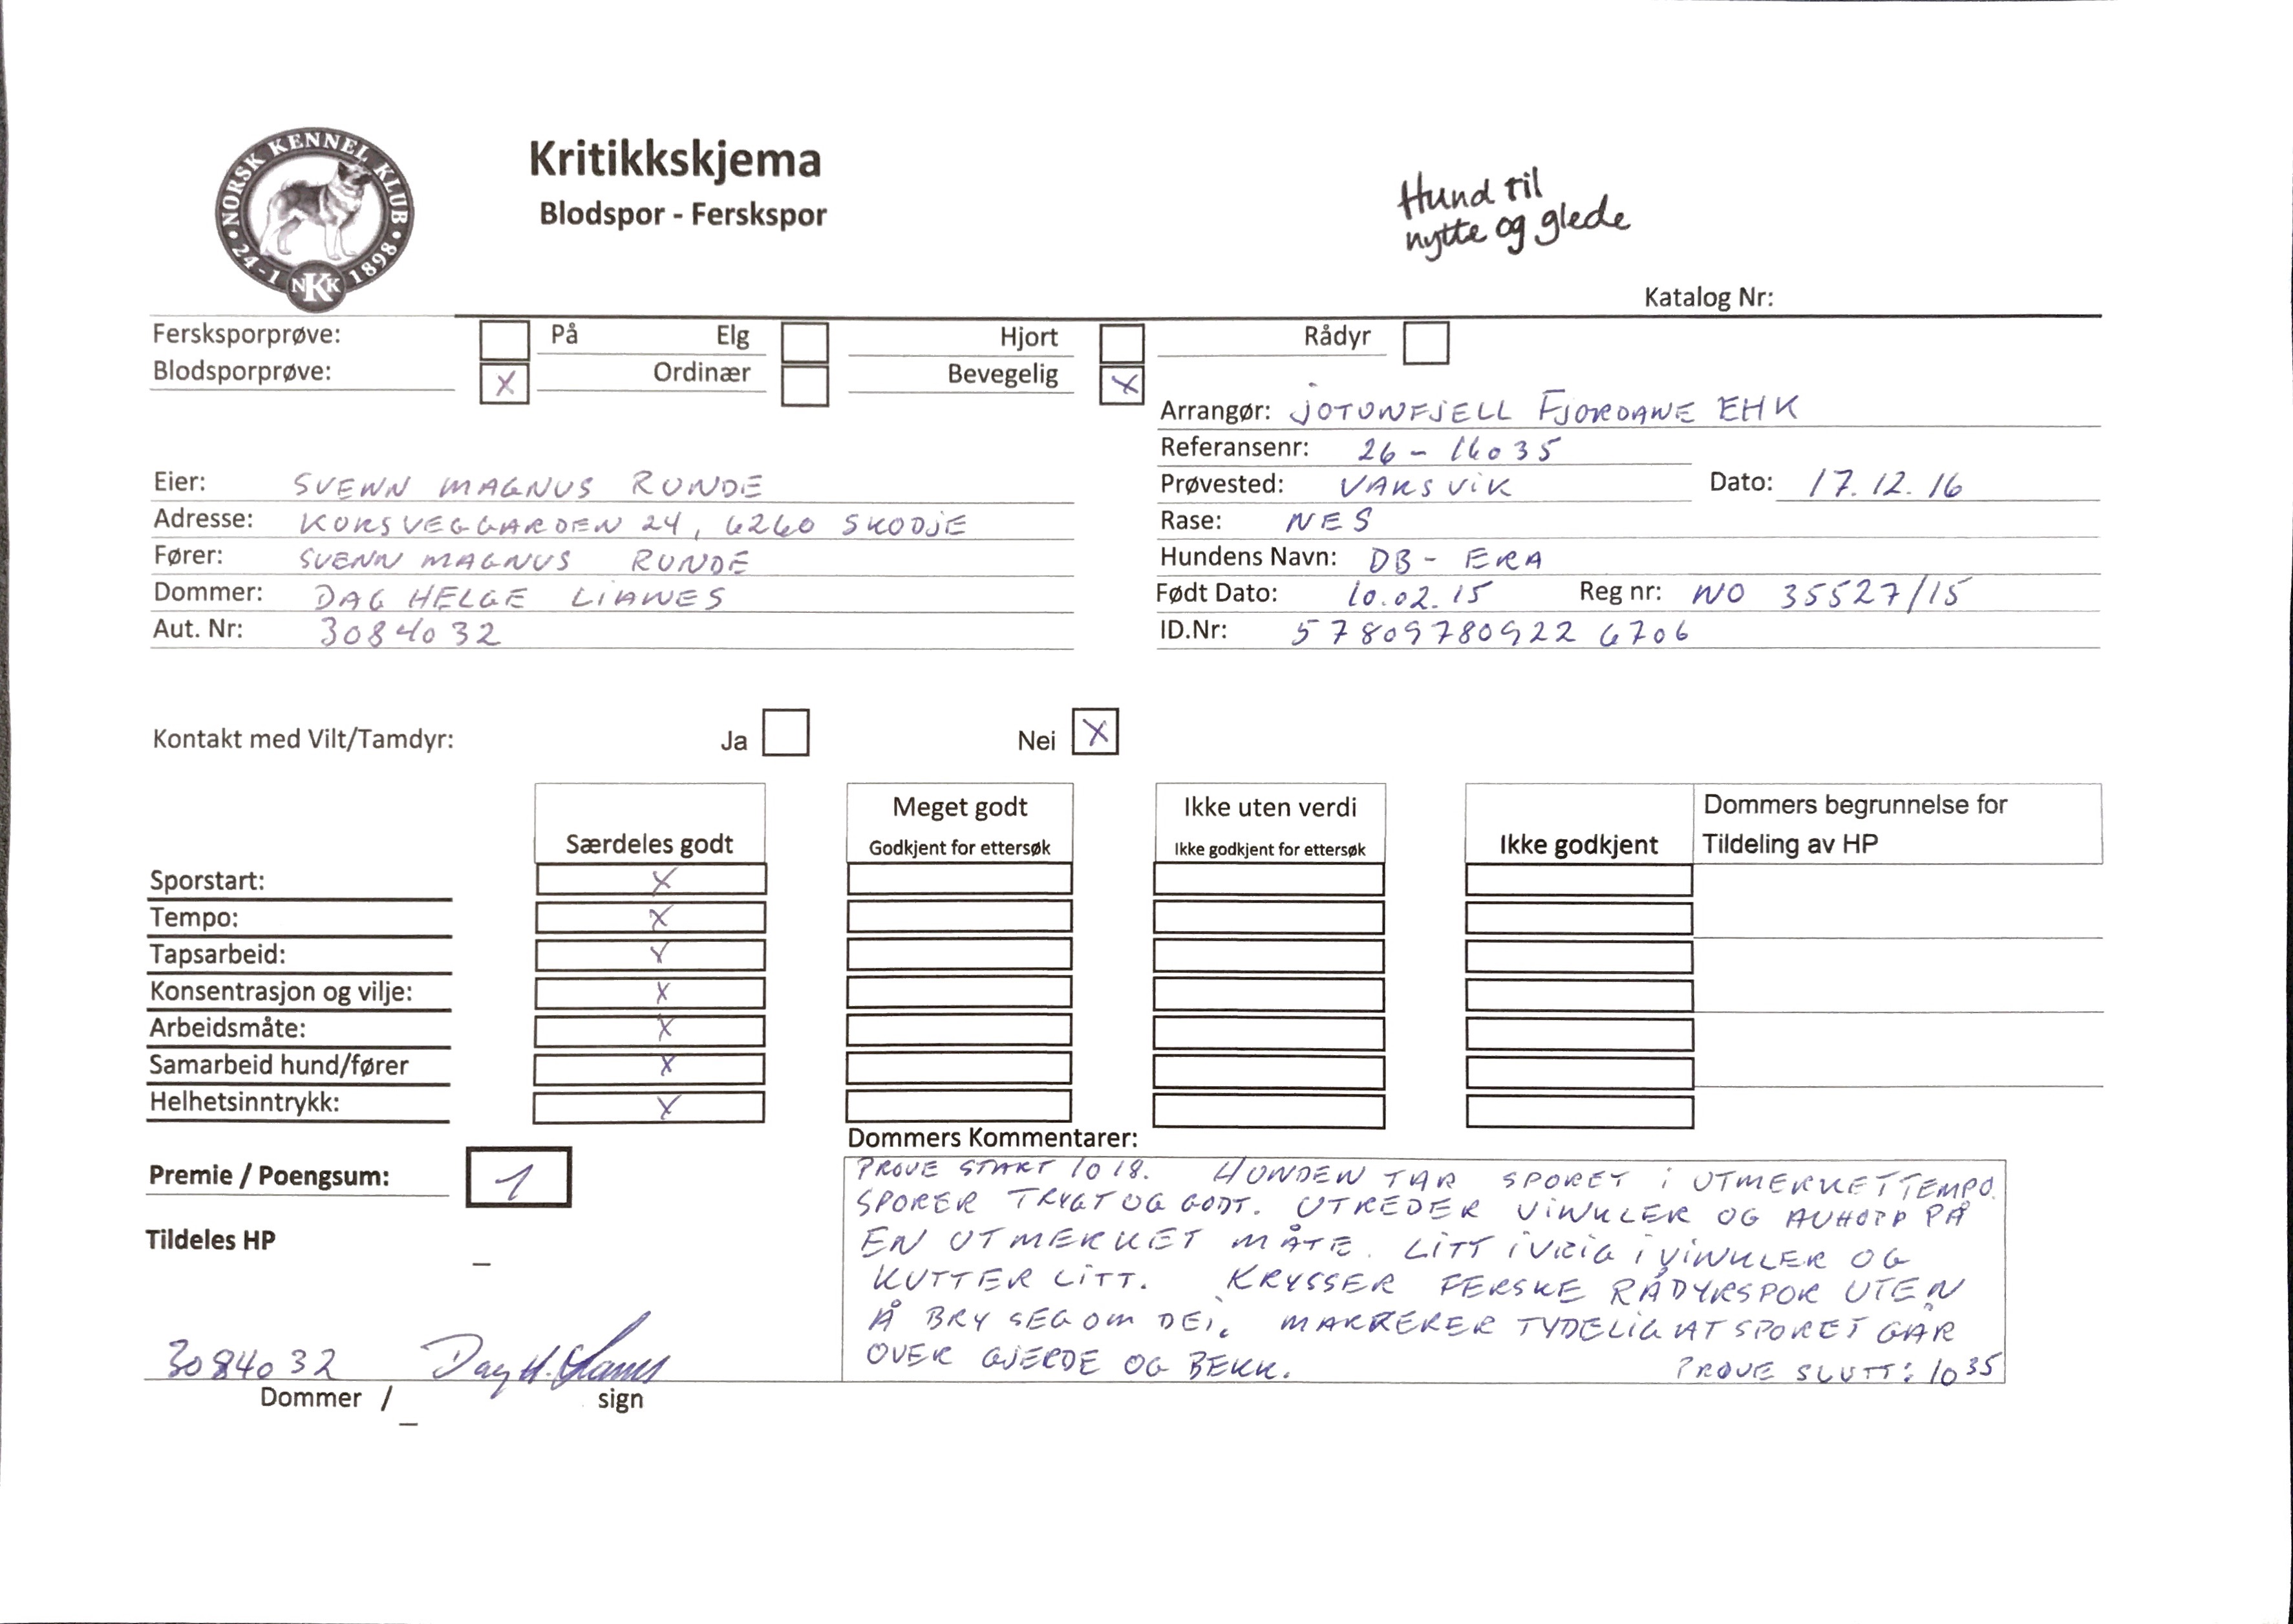 NORSK KENNEL KLUB
24-1 NKK 1898
Kritikkskjema
Blodspor - Ferskspor
Hund til
nytte og glede
Katalog Nr:
Fersksporprøve: På Elg Hjort Rådyr
Blodsporprøve: X Ordinær Bevegelig X
Arrangør: JOTUNFJELL FJORDANE EHK
Referansenr: 26-16035
Eier: SVENN MAGNUS RUNDE
Prøvested: VAKSVIK Dato: 17.12.16
Adresse: KORSVEGGARDEN 24, 6260 SKODJE
Rase: NES
Fører: SVENN MAGNUS RUNDE
Hundens Navn: DB- ERA
Dommer: DAG HELGE LIANES
Født Dato: 10.02.15 Reg nr: NO 35527/15
Aut. Nr: 3084032
ID.Nr: 578097809226706
Kontakt med Vilt/Tamdyr: Ja Nei X
Særdeles godt
Meget godt
Godkjent for ettersøk
Ikke uten verdi
Ikke godkjent for ettersøk
Ikke godkjent
Dommers begrunnelse for
Tildeling av HP
Sporstart: X
Tempo: X
Tapsarbeid: X
Konsentrasjon og vilje: X
Arbeidsmåte: X
Samarbeid hund/fører X
Helhetsinntrykk: X
Premie / Poengsum: 1
Tildeles HP
–
Dommers Kommentarer:
PRØVE START 1018. HUNDEN TAR SPORET I UTMERKET TEMPO.
SPORER TRYGT OG GODT. UTREDER VINKLER OG AVHOPP PÅ
EN UTMERKET MÅTE. LITT IVRIG I VINKLER OG
KUTTER LITT. KRYSSER FERSKE RÅDYRSPOR UTEN
Å BRY SEG OM DEI. MARKERER TYDELIG AT SPORET GÅR
OVER GJERDE OG BEKK.
PRØVE SLUTT: 1035
3084032 Dag H. Lianes
Dommer / _ sign